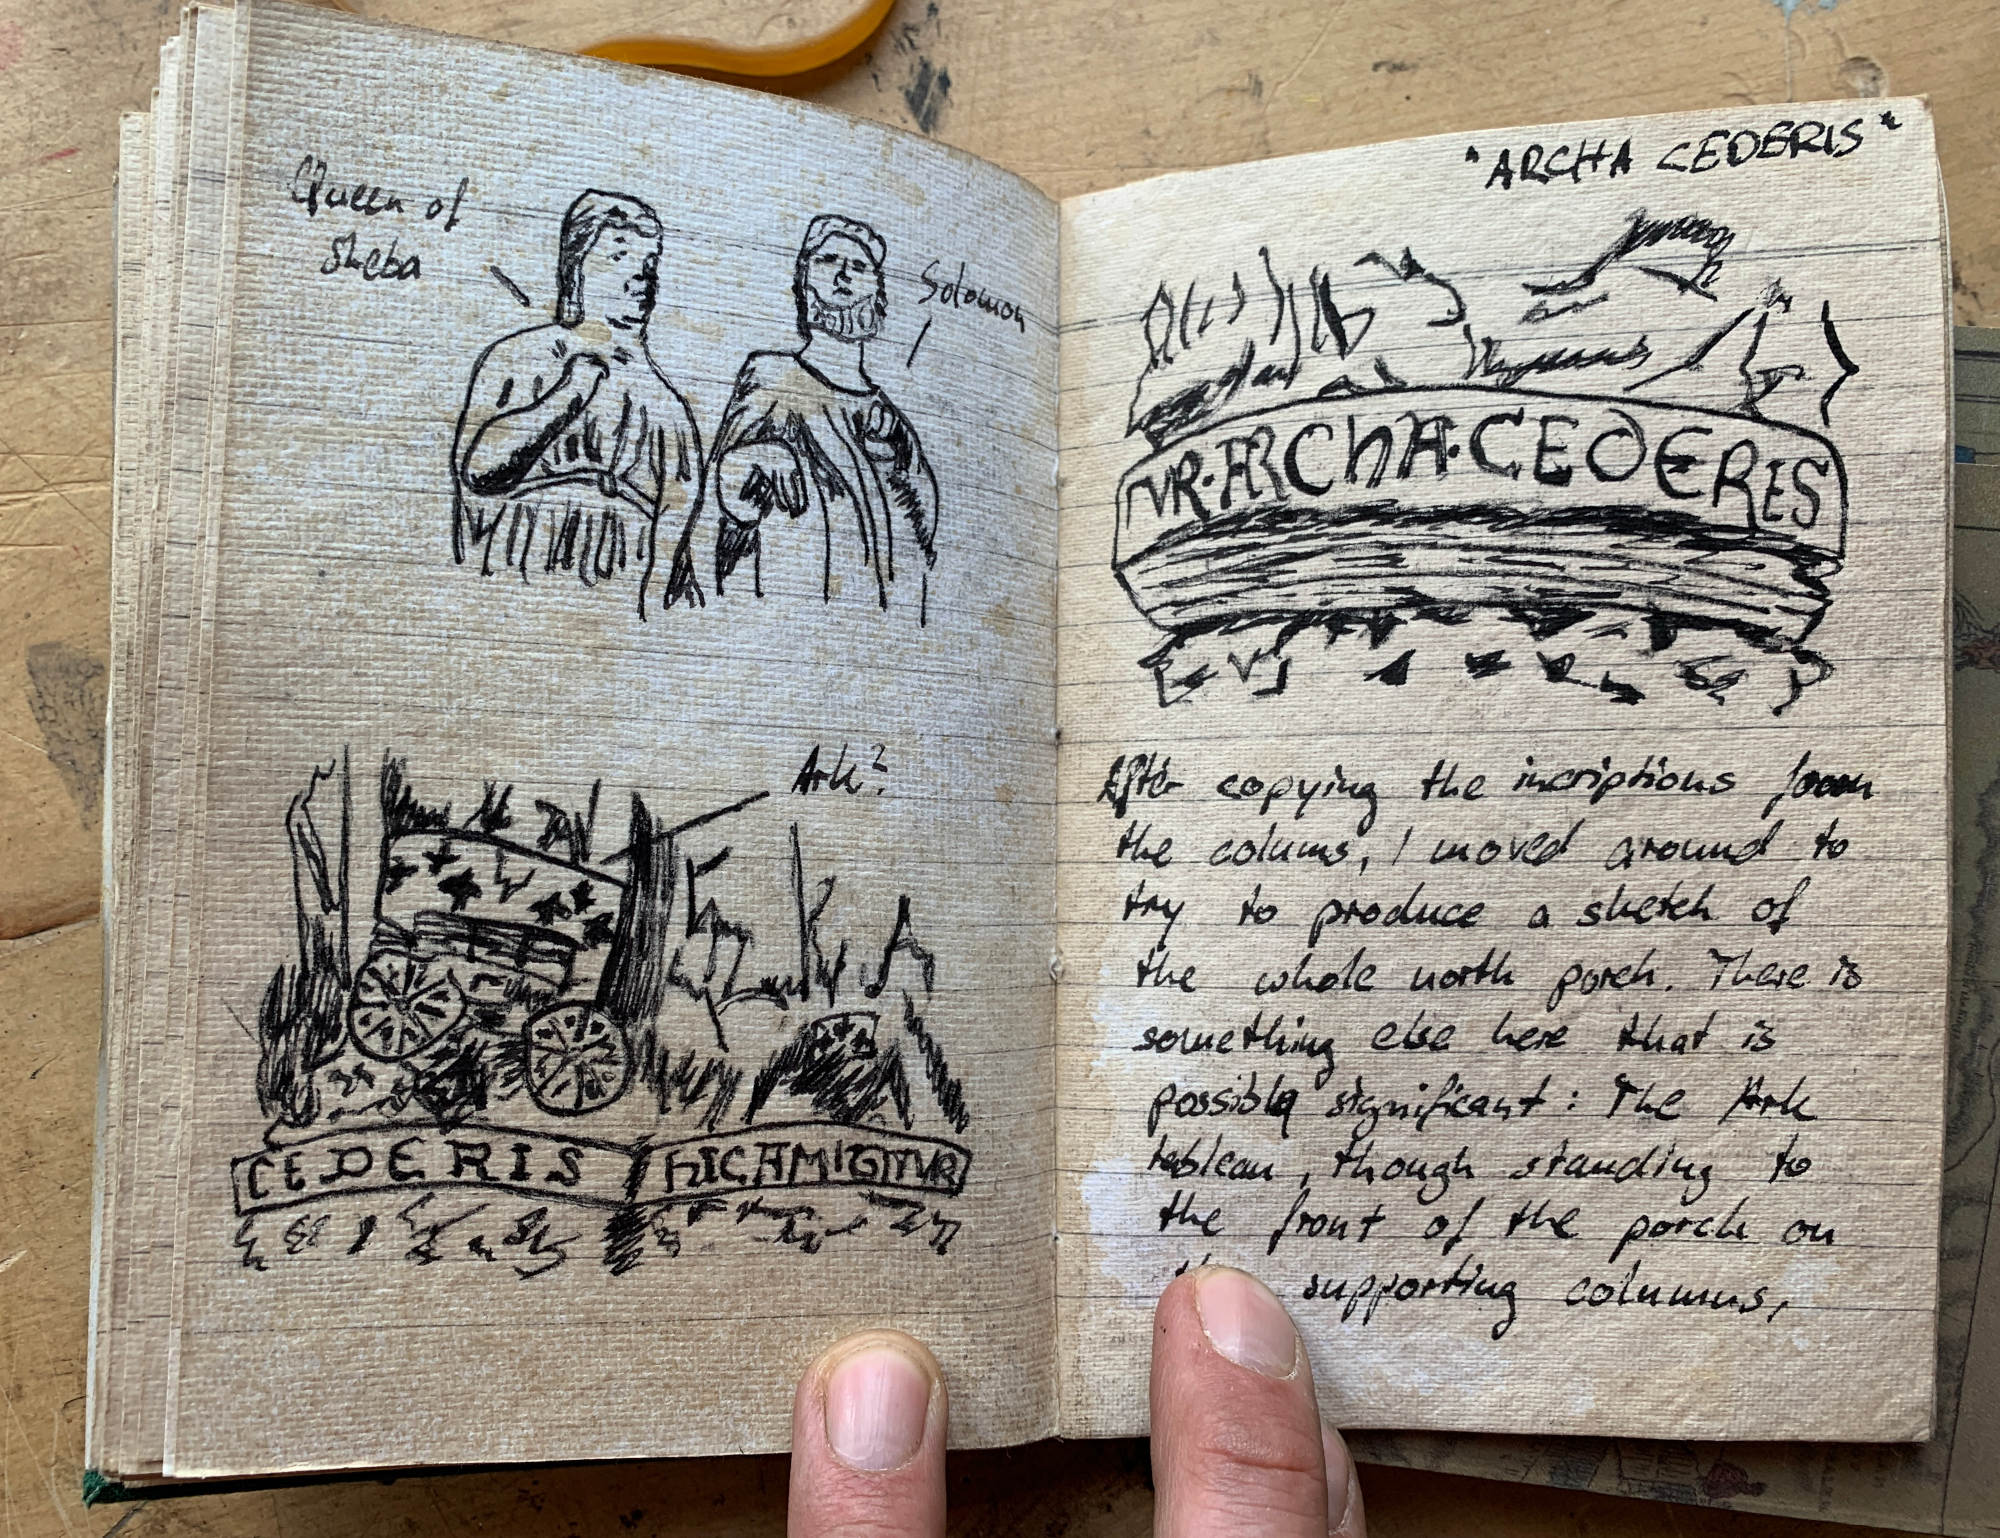 Queen of
Sheba
Solomon
Ark?
CEDERIS hICAMIGITVR
"ARCHA CEDERIS"
VR·ARChA·CEDERIS
After copying the incriptions from
the colums, I moved around to
try to produce a sketch of
the whole north porch. There is
something else here that is
possibly significant: The Ark
tableau, though standing to
the front of the porch on
supporting columns,